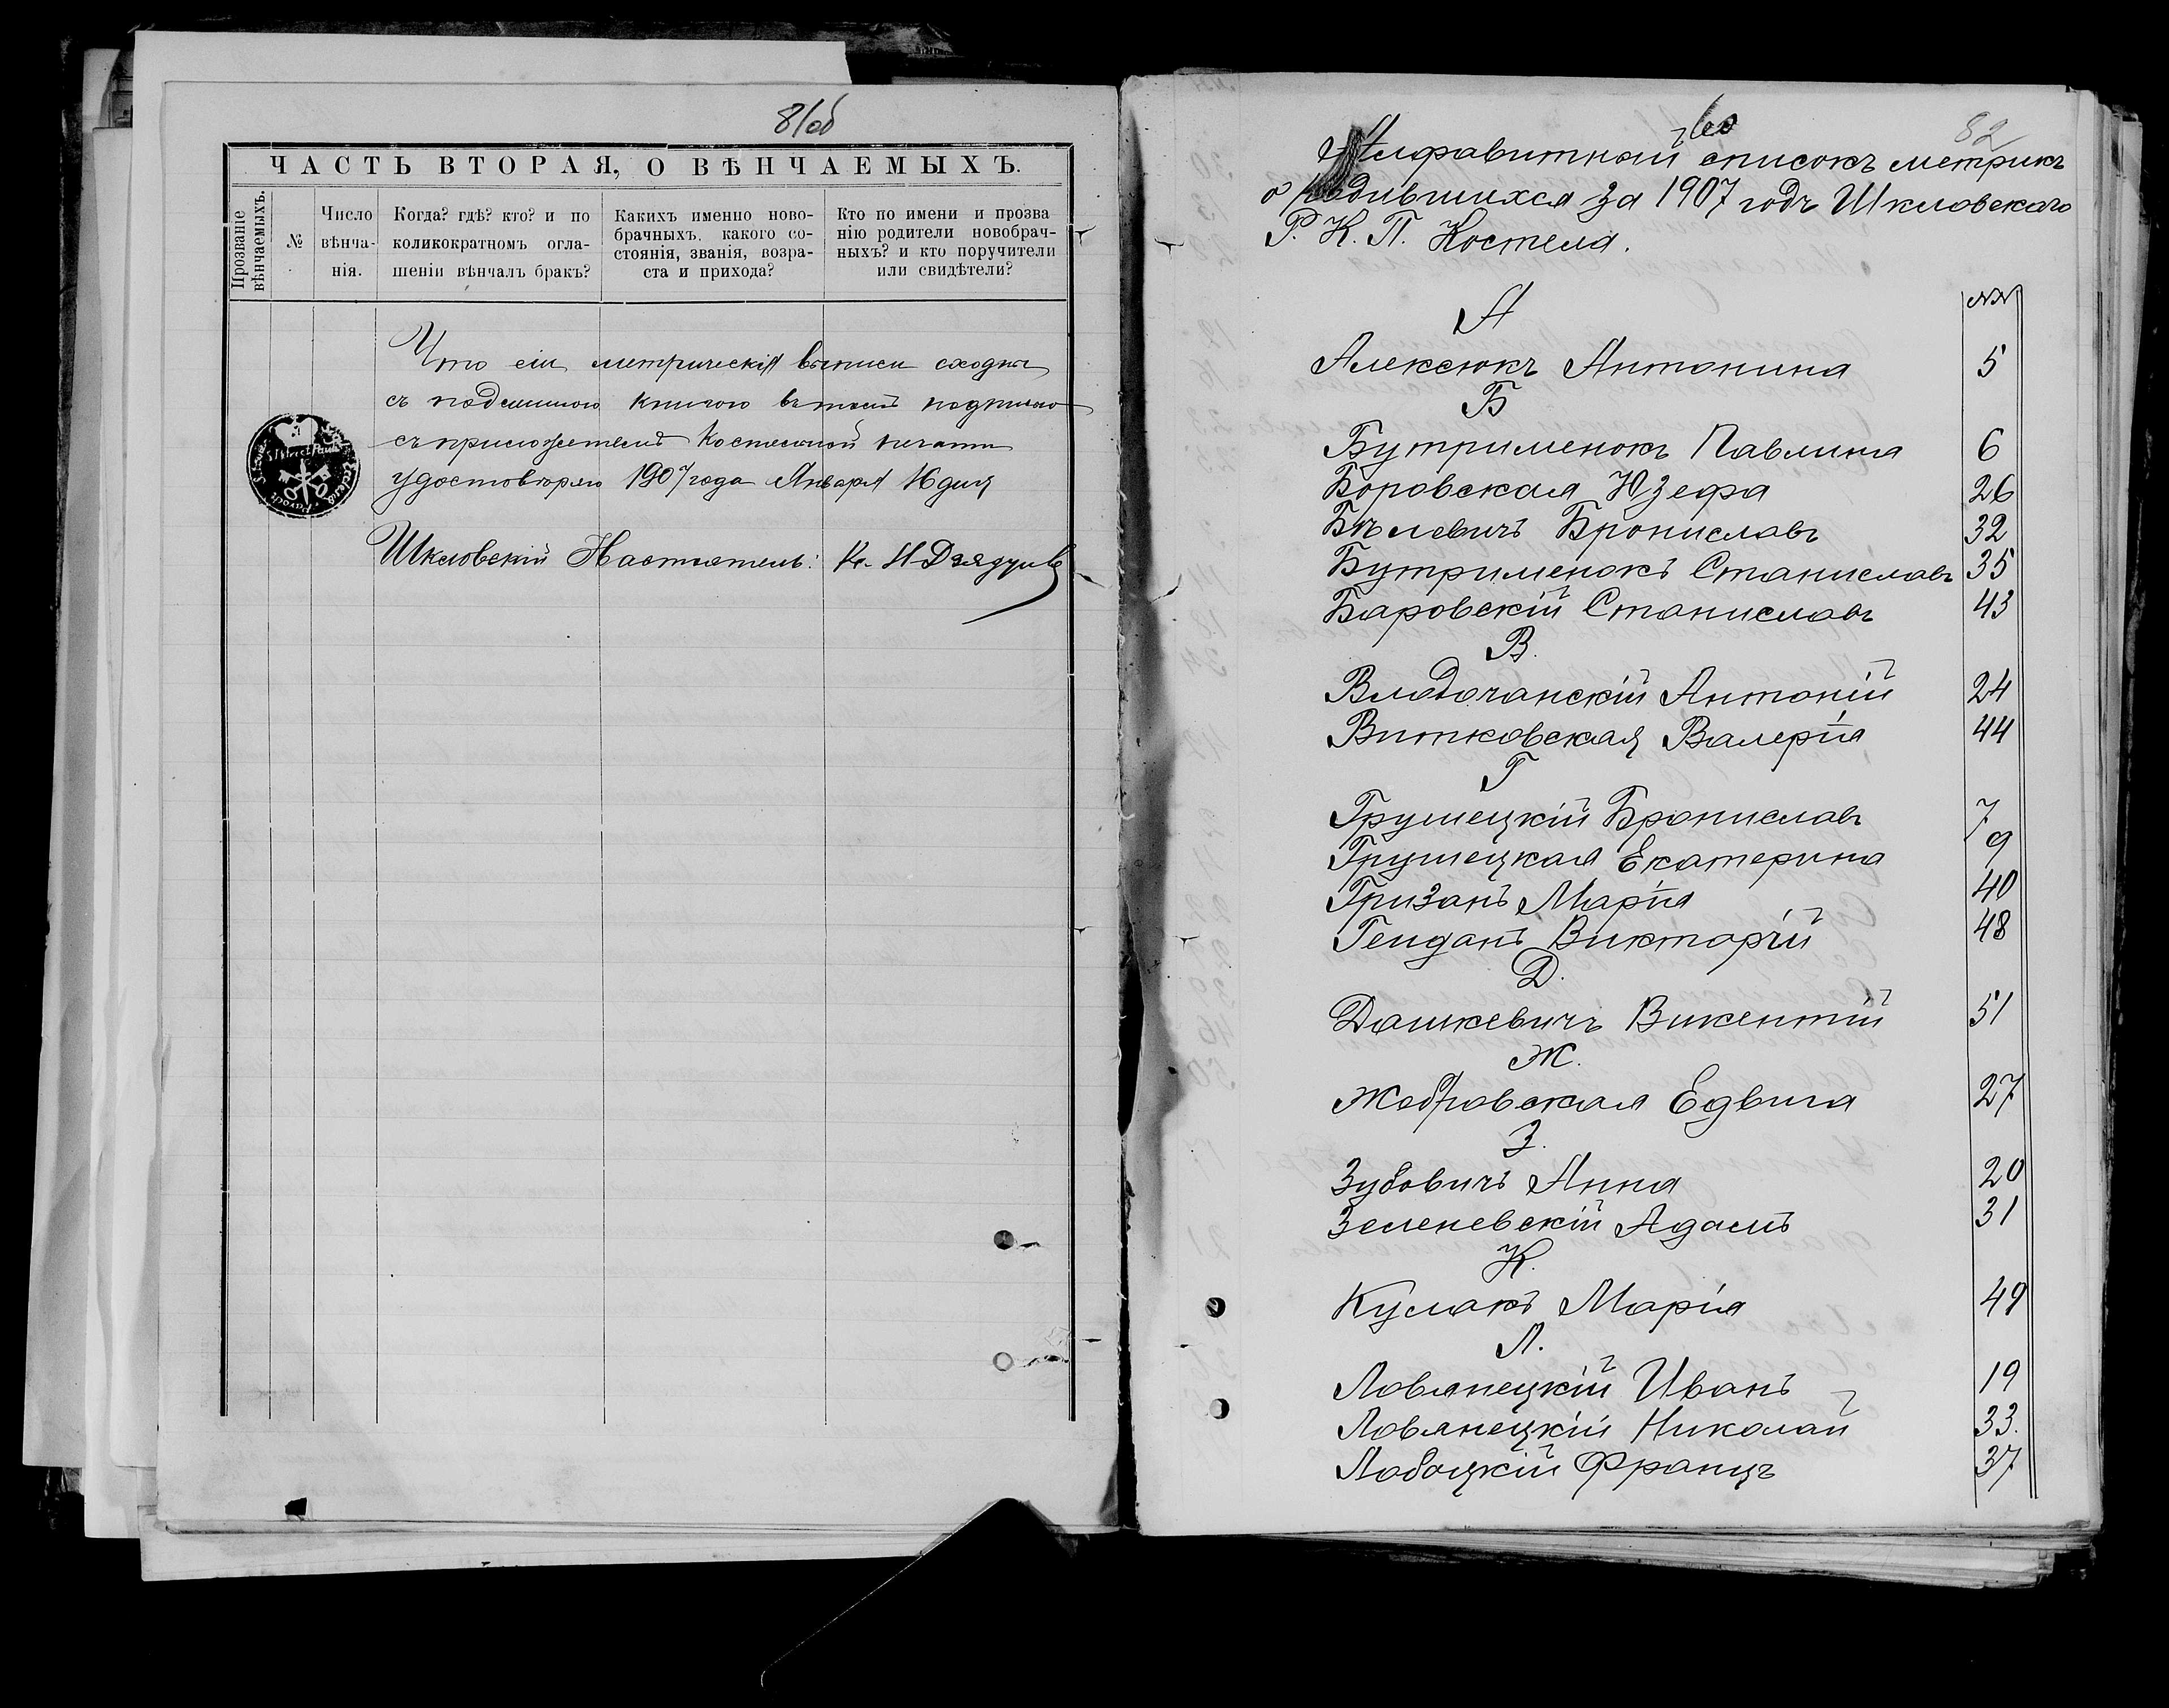 81об
ЧАСТЬ ВТОРАЯ, О ВѢНЧАЕМЫХЪ.
Прозваніе вѣнчаемыхъ.
№
Число вѣнча-нія.
Когда? гдѣ? кто? и по
коликократномъ огла-
шеніи вѣнчалъ бракъ?
Какихъ именно ново-
брачныхъ, какого со-
стоянія, званія, возра-
ста и прихода?
Кто по имени и прозва
нію родители новобрач-
ныхъ? и кто поручители
или свидѣтели?
Что сіи метрическія выписи сходны
съ подлинною книгою въ томъ подписью
съ приложеніемъ Костельной печати
удостовѣряю 1907 года Января 16 дня
Шкловскій Настоятель: Кс.
82
Алфавитный списокъ метрикъ
о родившихся за 1907 годъ Шкловскаго
Р. К. П. Костела.
№№
А
Алексюкъ Антонина 5
Б
Бутрименокъ Павлина 6
Боровская Юзефа 26
Бѣлевичъ Брониславъ 32
Бутрименокъ Станиславъ 35
Баровскій Станиславъ 43
В.
Влодочанскій Антоній 24
Витковская Валерія 44
Г
Грушецкій Брониславъ 7
Грушецкая Екатерина 9
Гризанъ Марія 40
Гейданъ Викторій 48
Д.
Дашкевичъ Викентій 51
Ж.
Жобровская Едвига 27
З.
Зубовичъ Анна 20
Зеленевскій Адамъ 31
К.
Кулакъ Марія 49
Л.
Ловянецкій Иванъ 19
Ловянецкій Николай 33.
Лобоцкій Францъ 37